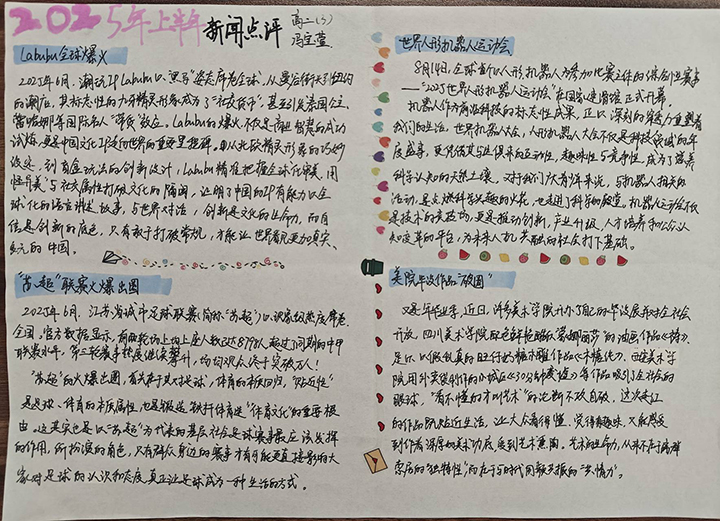 2025年上半年 新闻点评
高二(3)
冯宝萱
Labubu全球爆火
2025年6月,潮玩IP Labubu以"黑马"姿态席卷全球,从曼谷街头到纽约
的潮店,其标志性的九齿精灵形象成为了"社交货币",甚至引发泰国公主、
蕾哈娜等国际名人"带货"效应。Labubu的爆火不仅是商业智慧的成功
试炼,更是中国文化IP走向世界的重要里程碑。
从北欧精灵形象的巧妙
改述,到盲盒玩法的创新设计,Labubu精准把握全球化审美,用
"怪奇美"与社交属性打破文化的隔阂,证明了中国的IP有能力以全
球化的语言讲述故事,与世界对话,创新是文化的生命力,而自
信是创新的底色,只有敢于打破常规,才能让世界看见更加真实、
多元的中国。
"苏超"联赛火爆出圈
2025年6月,江苏省城市足球联赛(简称"苏超")以现象级热度席卷
全国,官方数据显示,前两轮场均上座人数达8798人,超过了同期的中甲
联赛水平,第三轮赛事状态继续攀升,场均观众终于突破万人!
"苏超"的火爆出圈,首先在于其对足球、体育的本质回归,"贴近性"
是足球、体育的本质属性,也是锻造 体育是"体育文化"的重要根
由,这其实也是以"苏超"为代表的基层社会足球赛事最应该发挥
的作用,所扮演的角色,只有群众身边的赛事才有可能更直接影响大
家对足球的认识和态度,真正让足球成为一种生活的方式。
世界人形机器人运动会
8月14日,全球首个以人形机器人为参加比赛主体的综合型赛事
——"2025世界人形机器人运动会"在国家速滑馆正式开幕。
机器人作为前沿科技的标志性成果,正以深刻的穿透力重塑着
我们的生活,世界机器人大会、人形机器人大会不仅是科技领域的年
度盛事,更凭借其与生俱来的互动性、趣味性与竞争性,成为了滋养
科学认知的天然土壤,对于我们广大青少年来说,与机器人相关的
活动,是点燃科学兴趣的火花,也是开了科创的殿堂,机器人运动会不仅
是技术的竞技场,更是推动创新、产业升级、人才培养和公众认
知变革的平台,为未来人机共融的社会打下基础。
美院毕设作品"破圈"
又是一年毕业季,近日,许多美术学院开办了自己的毕设展并对全社会
开放,四川美术学院 蒙娜丽莎》的油画作品《 》,
是以以假乱真的 糖水雕作品《冰糖化》,西安美术学
院用外卖袋制作的小城区《30分钟赛道》等作品吸引了全社会的
眼球,"看不懂的才叫艺术"的论断不攻自破,这次走红
的作品既贴近生活,让大众看得懂、觉得有趣味,又能感受
到作者深厚的美术功底,受到艺术熏陶,艺术的生命力,从来不在于
的"独特性",而在于与时代同频共振的"共情力"。